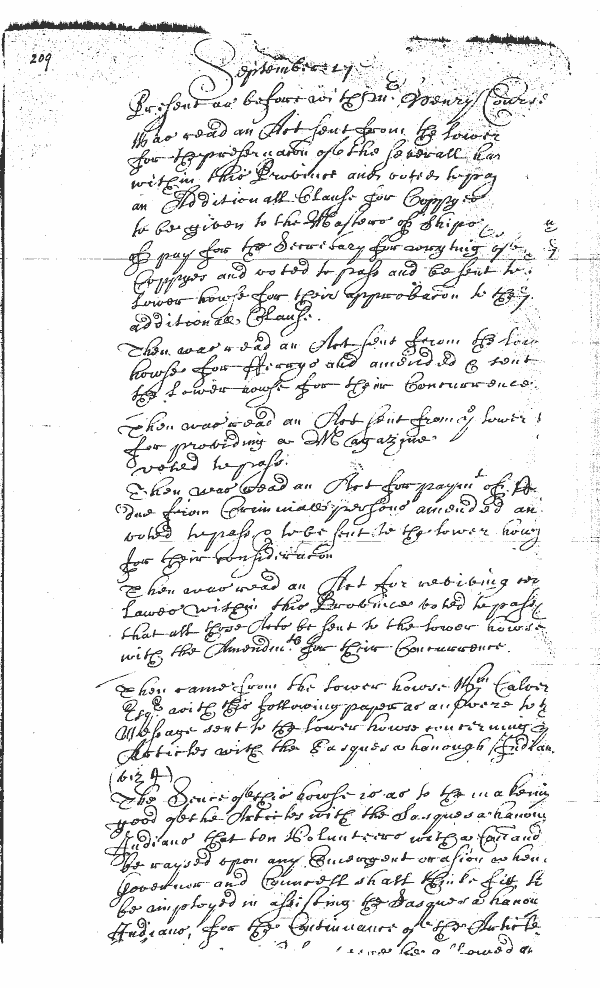 209
September 27
Present as before with mr. Henry Course
Was read an Act sent from the lower
for the preservacon of the severall har
within this Province and voted to pass
an Additionall Clause for Coppyes
to be given to the Masters of Ships
of pay for the Secretary for wryting of
Coppyes and voted to pass and be sent to
Lower house for their approbacon to the
additionall Clause.
Then was read an Act sent from the low
howse for fferrys and amended & sent
the Lower house for their Concurrence.
Then was read an Act sent from ye lower
for providing a Magazine
voted to pass.
Then was read an Act for paymt of
due from Criminall persons amended an
voted to pass & to be sent to the lower hows
for their consideracon
Then was read an Act for reviving cer
Lawes within this Province voted to pass
that all those Acts be sent to the lower howse
with the Amendmts for their Concurrence.
Then came from the lower howse Wm Calver
Esqr with this following paper as answere to
Message sent to the lower howse concerning
Articles with the Sasquesahanough Indian
(vizt)
The Sence of this howse is as to the making
good of the Articles with the Sasquesahanou
Indians that ten Volunteers with a and
be raysed upon any Emergent ocasion when
Governor and Councell shall thinke fitt
be imployed in assisting the Sasquesahanou
Indians, for the Continuance of the Article
be allowed an